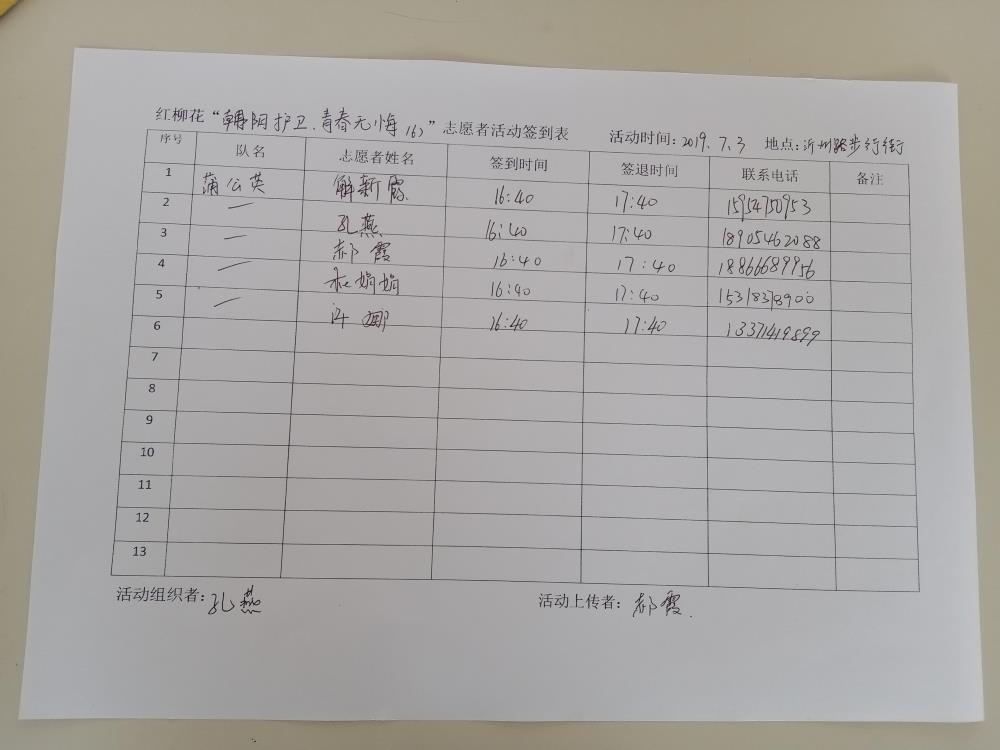 红柳花“朝阳护卫.青春无悔 163”志愿者活动签到表 活动时间: 2019.7.3 地点: 沂州路步行街
序号 队名 志愿者姓名 签到时间 签退时间 联系电话 备注
1 蒲公英 解新霞 16:40 17:40 15954750953
2 — 孔燕 16:40 17:40 18905462088
3 — 郝霞 16:40 17:40 18866689956
4 — 娟娟 16:40 17:40 15318378900
5 — 许娜 16:40 17:40 13371419899
6
7
8
9
10
11
12
13
活动组织者: 孔燕 活动上传者: 郝霞.